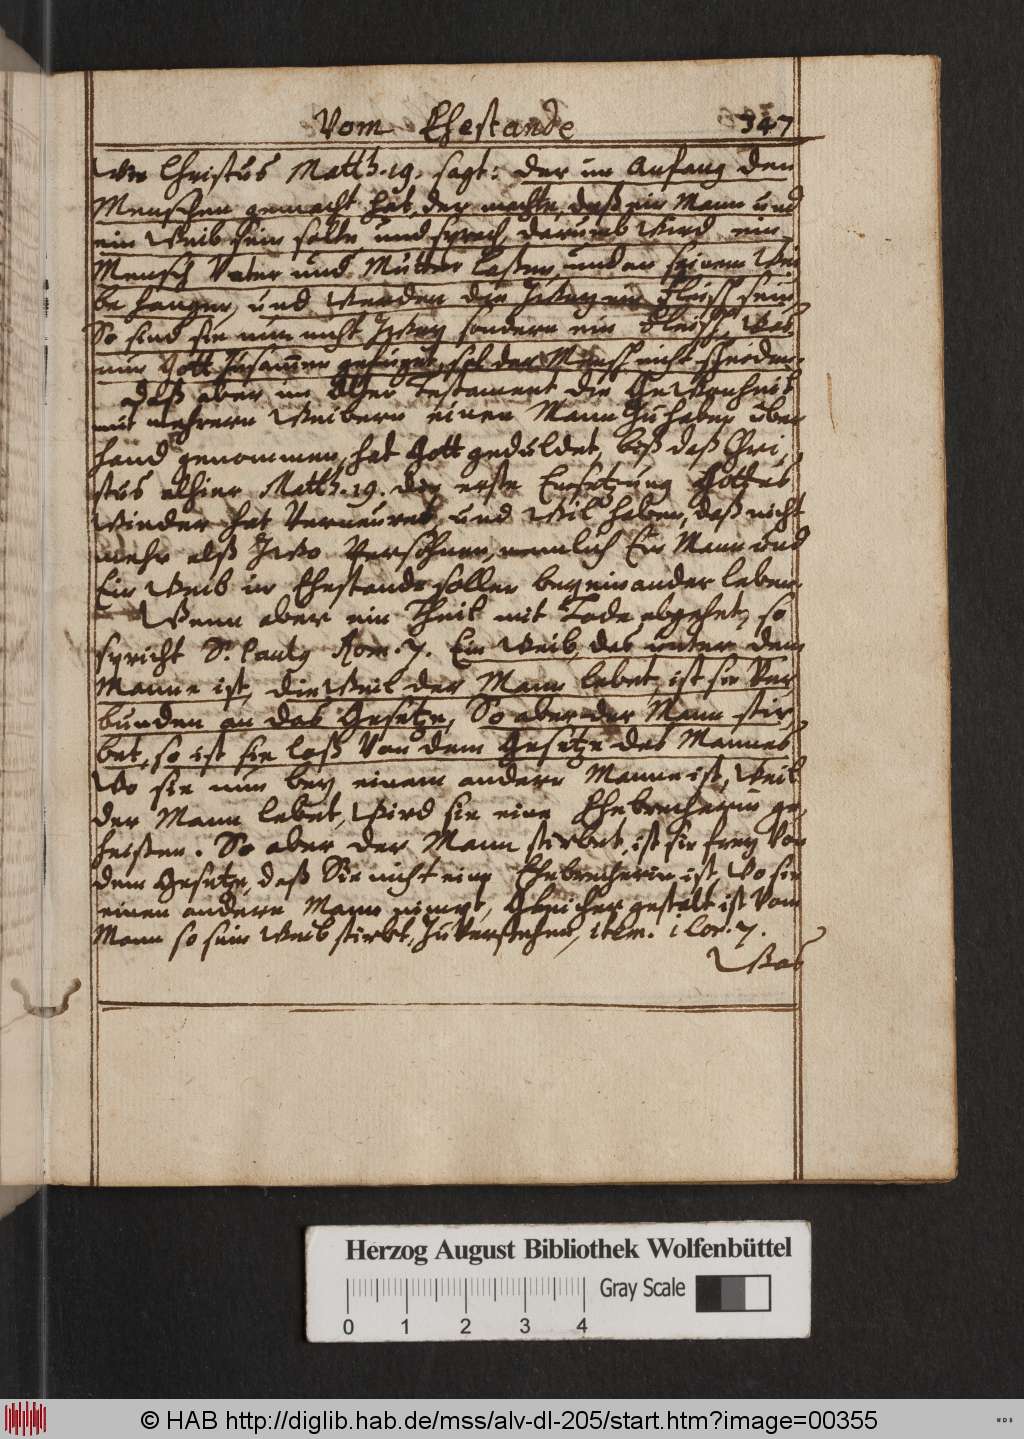 Vom Ehestande 347
Wie Christus Matth. 19. sagt: der im Anfang den
Menschen gemacht hat, der machte, daß ein Mann und
ein Weib sein solte und sprach, darumb Wird ein
Mensch Vater und Mutter laßen, und an seinem Wei
be hangen, und Werden die Zwey ein Fleisch sein,
So sind sie nun nicht Zwey sondern ein Fleisch, Was
nun Gott Zusam̅en gefüget, sol der Mensch nicht scheiden.
Daß aber im Alten Testament die GeWonheit
mit mehrern Weibern einen Mann Zu haben über
hand genommen, hat Gott geduldet, biß daß Chri,
stus alhier Matth. 19. die erste Einsetzung Gottes
Wieder hat Verneuret, und Wil haben, daß nicht
mehr alß ZWo Persohnen, nemlich Ein Mann und
Ein Weib im Ehestande sollen beyeinander leben.
Wenn aber ein Theil mit Tode abgehet, so
spricht S. Paulus Rom. 7. Ein Weib, das unter dem
Manne ist, dieWeil der Mann lebet, ist sie Ver
bunden an das Gesetze, So aber der Mann stir,
bet, so ist sie loß Von dem Gesetze des Mannes
Wo sie nun bey einem andern Manne ist, Weil
der Mann lebet, Wird sie eine Ehebrecherin ge,
heißen. So aber der Mann stirbet, ist sie frey Von
dem Gesetze, daß Sie nicht eine Ehebrecherin ist, Wo sie
einen andern Mann nimpt, Gleicher gestalt ist Vom
Mann so sein Weib stirbt, Zu Verstehen, item. 1 Cor. 7.
Was
Herzog August Bibliothek Wolfenbüttel
Gray Scale
0 1 2 3 4
© HAB http://diglib.hab.de/mss/alv-dl-205/start.htm?image=00355